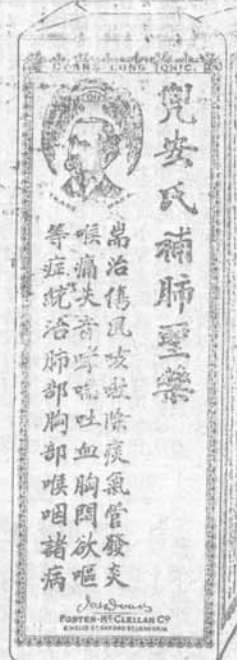 DOANS LUNG TONIC.
兜安氏補肺聖藥
耑治傷風咳嗽除痰氣管發炎
喉痛失音哮喘吐血胸悶欲嘔
等症統治肺部胸部喉咽諸病
TRADE
FOSTER-McCLELLAN Co